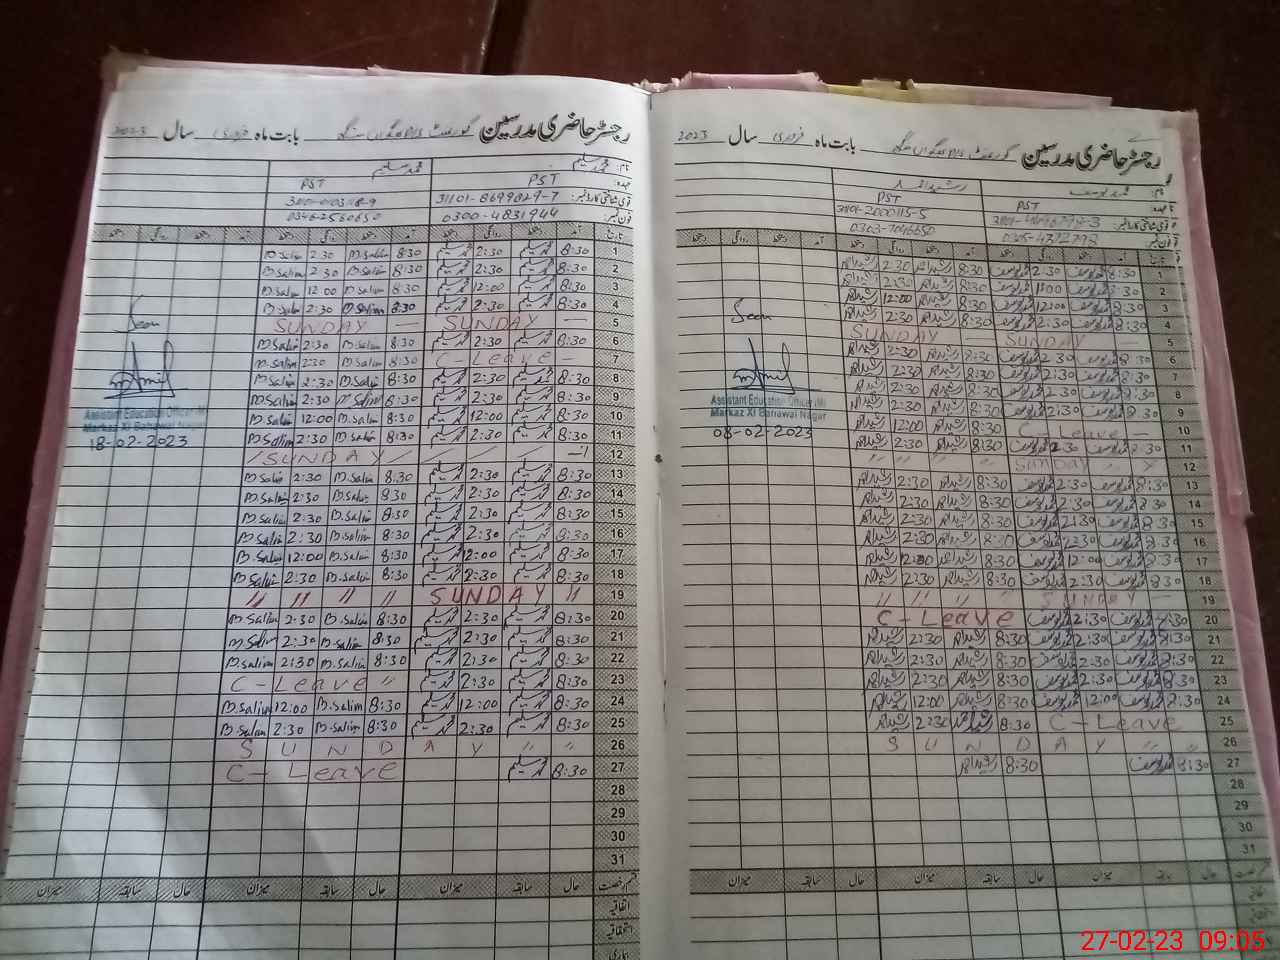 رجسٹر حاضری مدرسین گورنمنٹ بابت ماہ فروری سال 2023
نام: محمد یوسف رشید احمد
عہدہ: PST PST
قومی شناختی کارڈ نمبر:
فون نمبر:
تاریخ آمد دستخط روانگی دستخط آمد دستخط روانگی دستخط آمد دستخط روانگی دستخط
1 8:30 محمد یوسف 2:30 محمد یوسف 8:30 رشید احمد 2:30 رشید احمد
2 8:30 محمد یوسف محمد یوسف 8:30 رشید احمد 2:30 رشید احمد
3 8:30 محمد یوسف 12:00 محمد یوسف 8:30 رشید احمد 12:00 رشید احمد
4 8:30 محمد یوسف 2:30 محمد یوسف 8:30 رشید احمد 2:30 رشید احمد
5 SUNDAY — SUNDAY —
6 8:30 محمد یوسف 2:30 محمد یوسف 8:30 رشید احمد 2:30 رشید احمد
7 8:30 محمد یوسف 2:30 محمد یوسف 8:30 رشید احمد 2:30 رشید احمد
8 8:30 محمد یوسف 2:30 محمد یوسف 8:30 رشید احمد 2:30 رشید احمد
9 8:30 محمد یوسف 2:30 محمد یوسف 8:30 رشید احمد 2:30 رشید احمد
10 C-Leave — 8:30 رشید احمد 12:00 رشید احمد
11 8:30 محمد یوسف 2:30 محمد یوسف 8:30 رشید احمد 2:30 رشید احمد
12 SUNDAY " " " "
13 8:30 محمد یوسف 2:30 محمد یوسف 8:30 رشید احمد 2:30 رشید احمد
14 8:30 محمد یوسف 2:30 محمد یوسف 8:30 رشید احمد 2:30 رشید احمد
15 8:30 محمد یوسف 2:30 محمد یوسف 8:30 رشید احمد 2:30 رشید احمد
16 8:30 محمد یوسف 2:30 محمد یوسف 8:30 رشید احمد 2:30 رشید احمد
17 8:30 محمد یوسف 12:00 محمد یوسف 8:30 رشید احمد 12:00 رشید احمد
18 8:30 محمد یوسف 2:30 محمد یوسف 8:30 رشید احمد 2:30 رشید احمد
19 SUNDAY — " " " "
20 8:30 محمد یوسف 2:30 محمد یوسف C-Leave
21 8:30 محمد یوسف 2:30 محمد یوسف 8:30 رشید احمد 2:30 رشید احمد
22 8:30 محمد یوسف 2:30 محمد یوسف 8:30 رشید احمد 2:30 رشید احمد
23 8:30 محمد یوسف 2:30 محمد یوسف 8:30 رشید احمد 2:30 رشید احمد
24 8:30 محمد یوسف 12:00 محمد یوسف 8:30 رشید احمد 12:00 رشید احمد
25 C-Leave 8:30 رشید احمد 2:30 رشید احمد
26 SUNDAY " "
27 8:30 محمد یوسف 8:30 رشید احمد
28
29
30
31
Seen
Assistant Education Officer (M)
Markaz XI Bahawal Nagar
08-02-2023
حال سابقہ میزان حال سابقہ میزان حال سابقہ میزان
رجسٹر حاضری مدرسین گورنمنٹ بابت ماہ فروری سال 2023
نام: محمد سلیم محمد سلیم
عہدہ: PST PST
قومی شناختی کارڈ نمبر: 31101-8699829-7
فون نمبر: 0300-4831944 0346-2560650
تاریخ آمد دستخط روانگی دستخط آمد دستخط روانگی دستخط آمد دستخط روانگی دستخط
1 8:30 محمد سلیم 2:30 محمد سلیم 8:30 M.Salim 2:30 M.Salim
2 8:30 محمد سلیم 2:30 محمد سلیم 8:30 M.Salim 2:30 M.Salim
3 8:30 محمد سلیم 12:00 محمد سلیم 8:30 M.Salim 12:00 M.Salim
4 8:30 محمد سلیم 2:30 محمد سلیم 8:30 M.Salim 2:30 M.Salim
5 SUNDAY — SUNDAY —
6 8:30 محمد سلیم 2:30 محمد سلیم 8:30 M.Salim 2:30 M.Salim
7 C-Leave — 8:30 M.Salim 2:30 M.Salim
8 8:30 محمد سلیم 2:30 محمد سلیم 8:30 M.Salim 2:30 M.Salim
9 8:30 محمد سلیم 2:30 محمد سلیم 8:30 M.Salim 2:30 M.Salim
10 8:30 محمد سلیم 12:00 محمد سلیم 8:30 M.Salim 12:00 M.Salim
11 8:30 محمد سلیم 2:30 محمد سلیم 8:30 M.Salim 2:30 M.Salim
12 / SUNDAY / / / /
13 8:30 محمد سلیم 2:30 محمد سلیم 8:30 M.Salim 2:30 M.Salim
14 8:30 محمد سلیم 2:30 محمد سلیم 8:30 M.Salim 2:30 M.Salim
15 8:30 محمد سلیم 2:30 محمد سلیم 8:30 M.Salim 2:30 M.Salim
16 8:30 محمد سلیم 2:30 محمد سلیم 8:30 M.Salim 2:30 M.Salim
17 8:30 محمد سلیم 12:00 محمد سلیم 8:30 M.Salim 12:00 M.Salim
18 8:30 محمد سلیم 2:30 محمد سلیم 8:30 M.Salim 2:30 M.Salim
19 SUNDAY " " " " "
20 8:30 محمد سلیم 2:30 محمد سلیم 8:30 M.Salim 2:30 M.Salim
21 8:30 محمد سلیم 2:30 محمد سلیم 8:30 M.Salim 2:30 M.Salim
22 8:30 محمد سلیم 2:30 محمد سلیم 8:30 M.Salim 2:30 M.Salim
23 8:30 محمد سلیم 2:30 محمد سلیم C-Leave "
24 8:30 محمد سلیم 12:00 محمد سلیم 8:30 M.Salim 12:00 M.Salim
25 8:30 محمد سلیم 2:30 محمد سلیم 8:30 M.Salim 2:30 M.Salim
26 SUNDAY " "
27 8:30 محمد سلیم C-Leave
28
29
30
31
Seen
Assistant Education Officer (M)
Markaz XI Bahawal Nagar
18-02-2023
قسم رخصت حال سابقہ میزان حال سابقہ میزان حال سابقہ میزان
اتفاقیہ
استحقاقیہ
بیماری
27-02-23 09:05